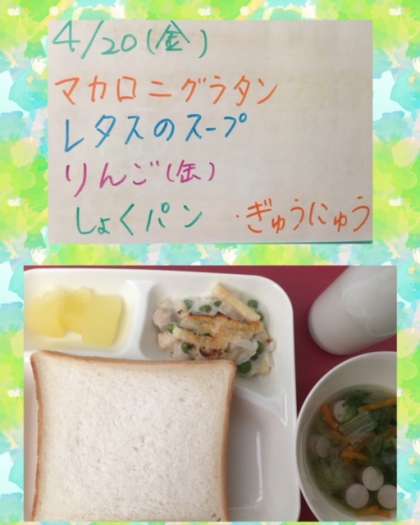 4/20(金)
マカロニグラタン
レタスのスープ
りんご(缶)
しょくパン ・ぎゅうにゅう